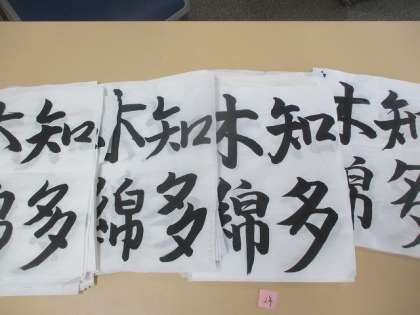 知多
木綿
知多
木綿
知多
木綿
知多
木綿